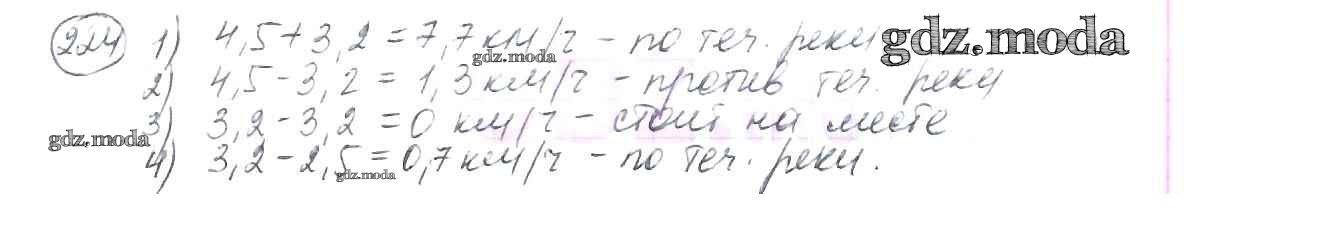 224 1) 4,5+3,2=7,7км/ч – по теч. реки gdz.moda
gdz.moda
2) 4,5-3,2=1,3км/ч – против теч. реки
3) 3,2-3,2=0 км/ч – стоит на месте
gdz.moda
4) 3,2-2,5=0,7км/ч – по теч. реки.
gdz.moda